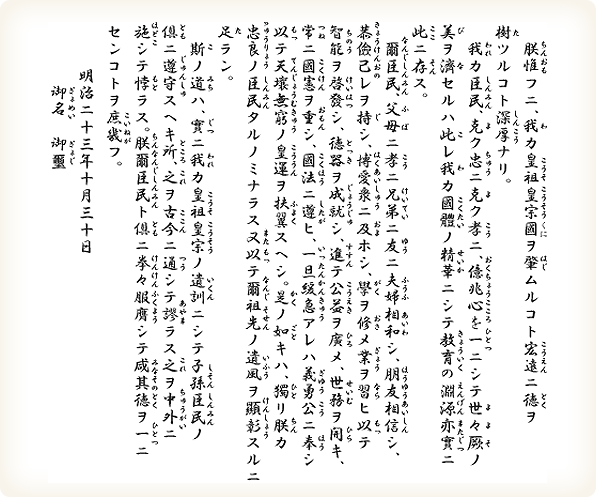 朕惟フニ、我カ皇祖皇宗國ヲ肇ムルコト宏遠ニ德ヲ
樹ツルコト深厚ナリ。
我カ臣民、克ク忠ニ克ク孝ニ、億兆心を一ニシテ世々厥ノ
美ヲ濟セルハ此レ我カ國體ノ精華ニシテ教育の淵源亦實ニ
此ニ存ス。
爾臣民、父母ニ孝ニ兄弟ニ友ニ夫婦相和シ、朋友相信シ、
恭儉己レヲ持シ、博愛衆ニ及ホシ、學ヲ修メ業ヲ習ヒ以テ
智能ヲ啓發シ、德器ヲ成就シ、進テ公益ヲ廣メ、世務ヲ開キ、
常ニ國憲ヲ重シ、國法ニ遵ヒ、一旦緩急アレハ義勇公ニ奉シ
以テ天壤無窮ノ皇運ヲ扶翼スヘシ。是ノ如キハ、獨リ朕カ
忠良ノ臣民タルノミナラス又以テ爾祖先ノ遺風ヲ顯彰スルニ
足ラン。
斯ノ道ハ、實ニ我カ皇祖皇宗ノ遺訓ニシテ子孫臣民ノ
俱ニ遵守スヘキ所、之ヲ古今ニ通シテ謬ラス之ヲ中外ニ
施シテ悖ラス。朕爾臣民ト俱ニ拳々服膺シテ咸其德ヲ一ニ
センコトヲ庶幾フ。
明治二十三年十月三十日
御名 御璽